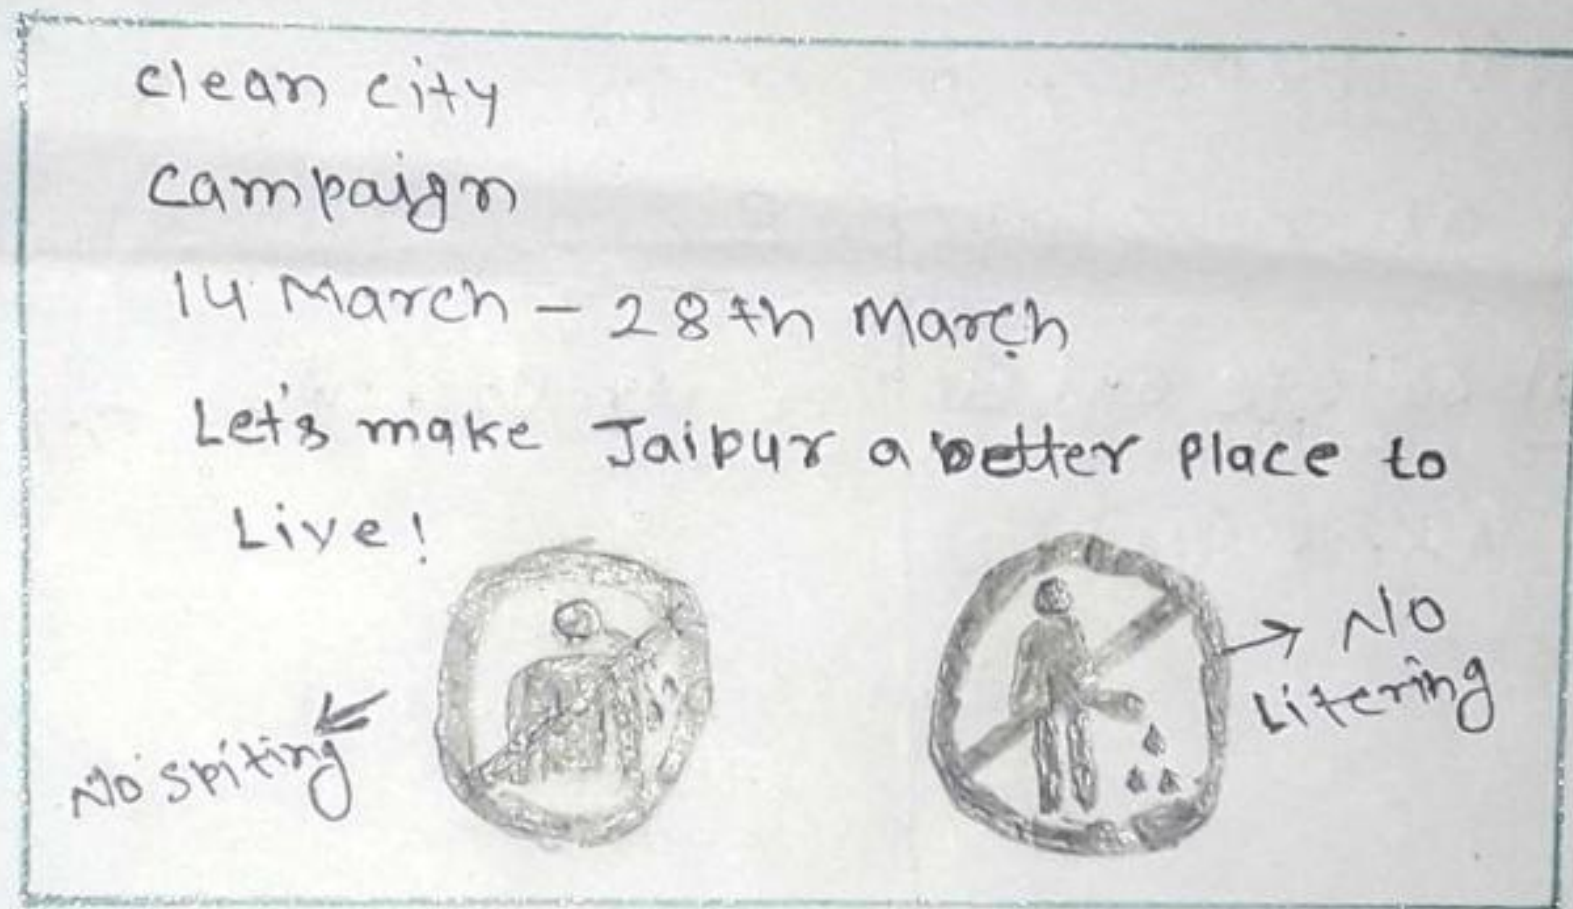 clean city
campaign
14 March - 28th March
Let's make Jaipur a better place to
Live!
No spiting
No
Litering